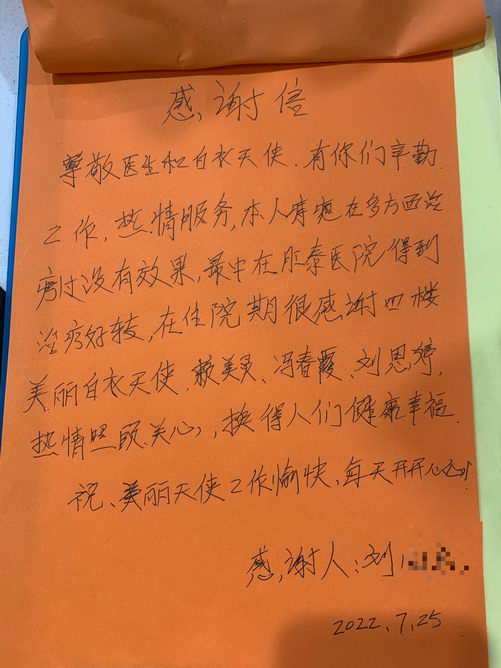 感谢信
尊敬医生和白衣天使.有你们辛勤
工作,热情服务,本人疼疱在多方面治
疗过没有效果,最中在肛泰医院得到
治疗好转,在住院期很感谢四楼
美丽白衣天使.美灵、冯春霞、刘思婷,
热情照顾.关心,,换得人们健康幸福.
祝、美丽天使工作愉快,每天开开心心
感谢人:刘
2022.7.25